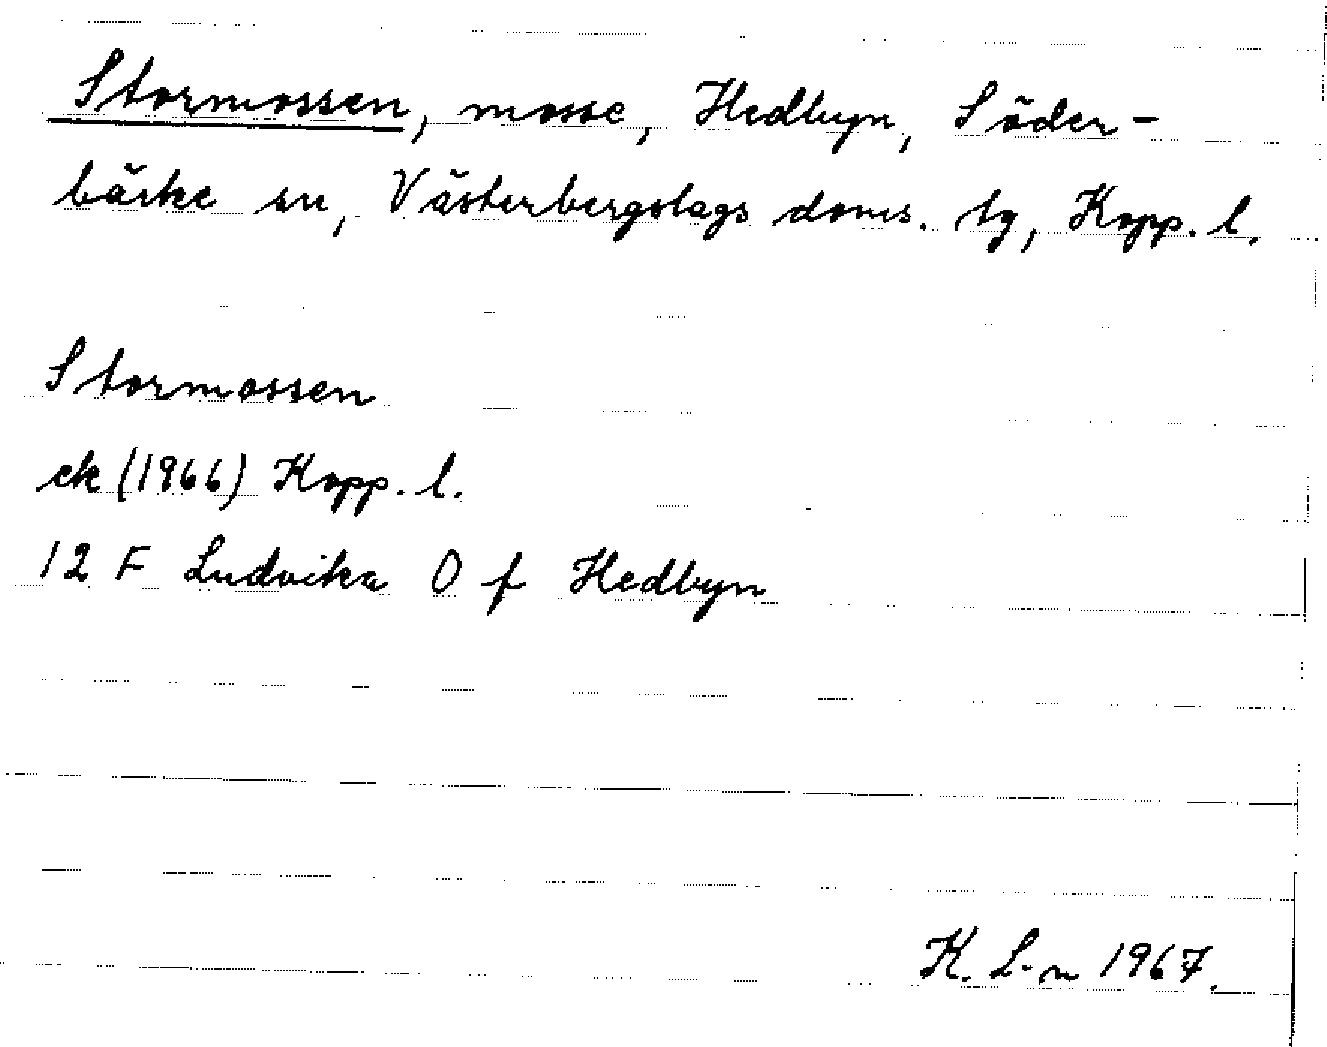 Stormossen, mosse, Hedbyn, Söder-
bärke sn, Västerbergslags doms. tg, Kopp. l.
Stormossen
ek (1966) Kopp. l.
12 F Ludvika O f Hedbyn
K. L-n 1967.